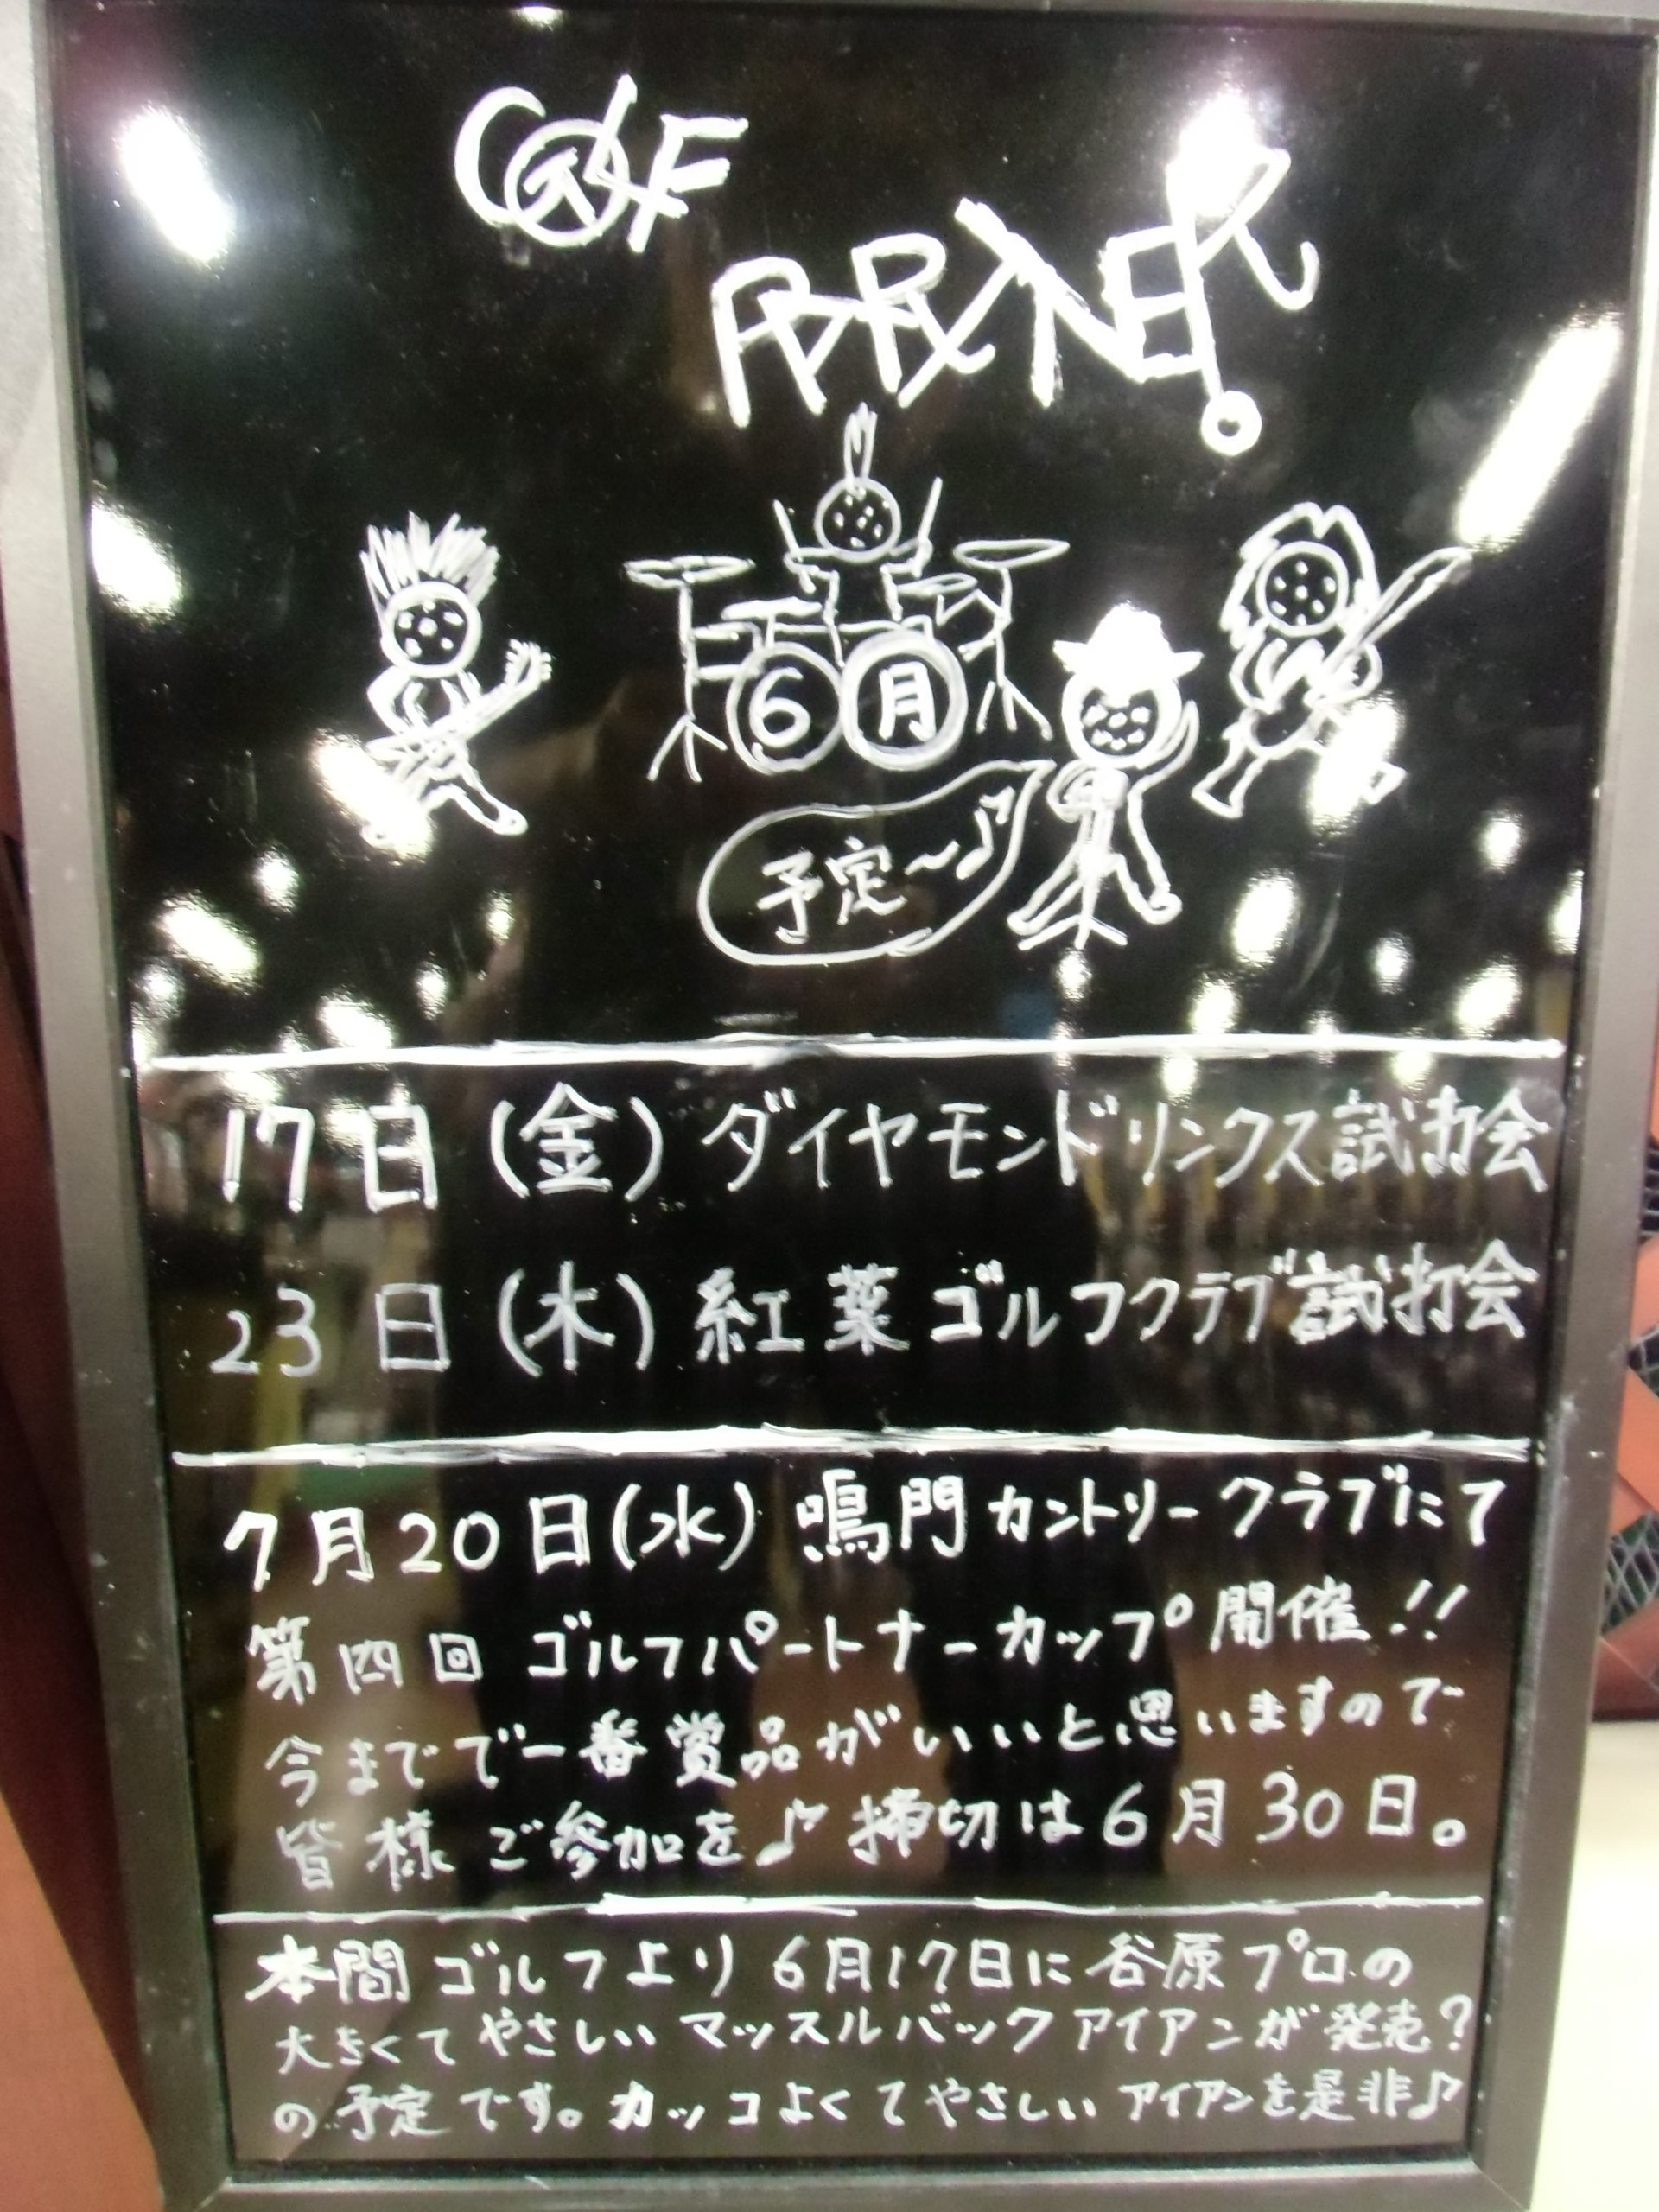 GOLF
PARTNER
6月
予定〜♪
17日(金)ダイヤモンドリンクス試打会
23日(木)紅葉ゴルフクラブ試打会
7月20日(水)鳴門カントリークラブにて
第四回 ゴルフパートナーカップ開催!!
今までで一番賞品がいいと思いますので
皆様ご参加を♪締切は6月30日。
本間ゴルフより6月17日に谷原プロの
大きくてやさしいマッスルバックアイアンが発売?
の予定です。カッコよくてやさしいアイアンを是非♪